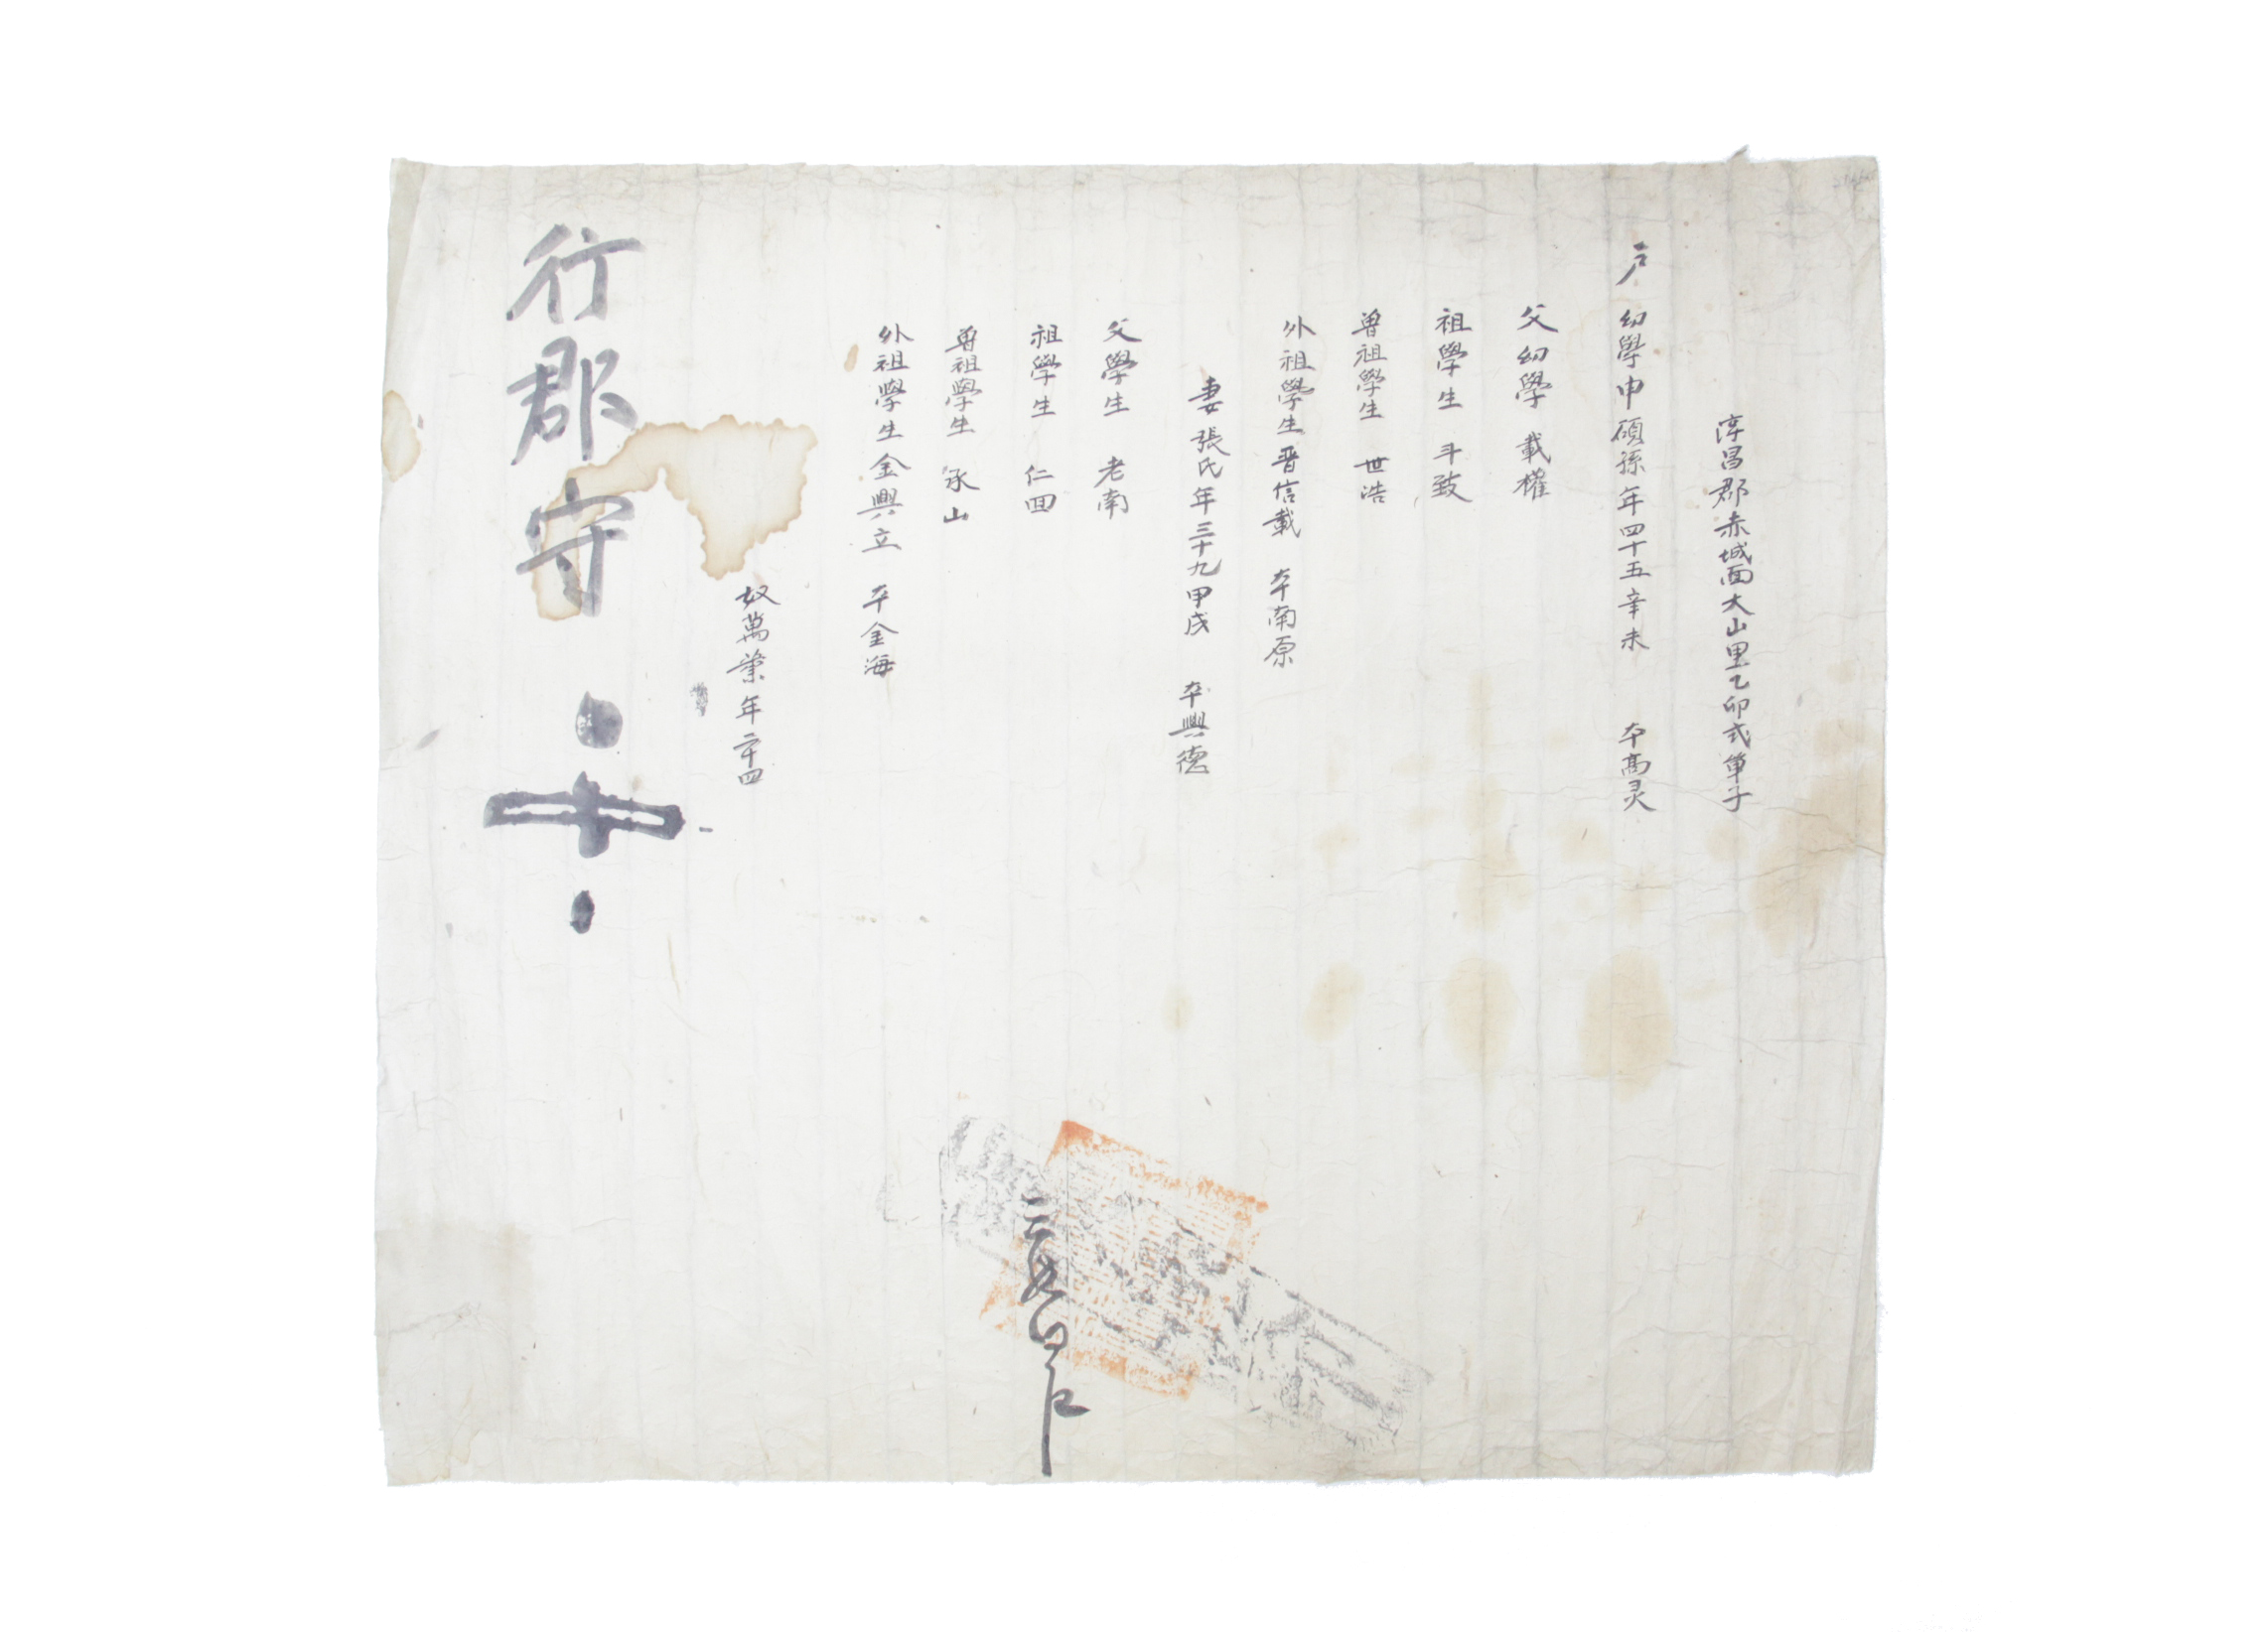 淳昌郡赤城面大山里乙卯式單子
戶 幼學申碩孫年四十五辛未 本高灵
父幼學 載權
祖學生 斗致
曾祖學生 世浩
外祖學生晋信載 本南原
妻張氏年三十九甲戌 本興德
父學生 老南
祖學生 仁回
曾祖學生 承山
外祖學生金興立 本金海
奴萬業年二十四
行郡守